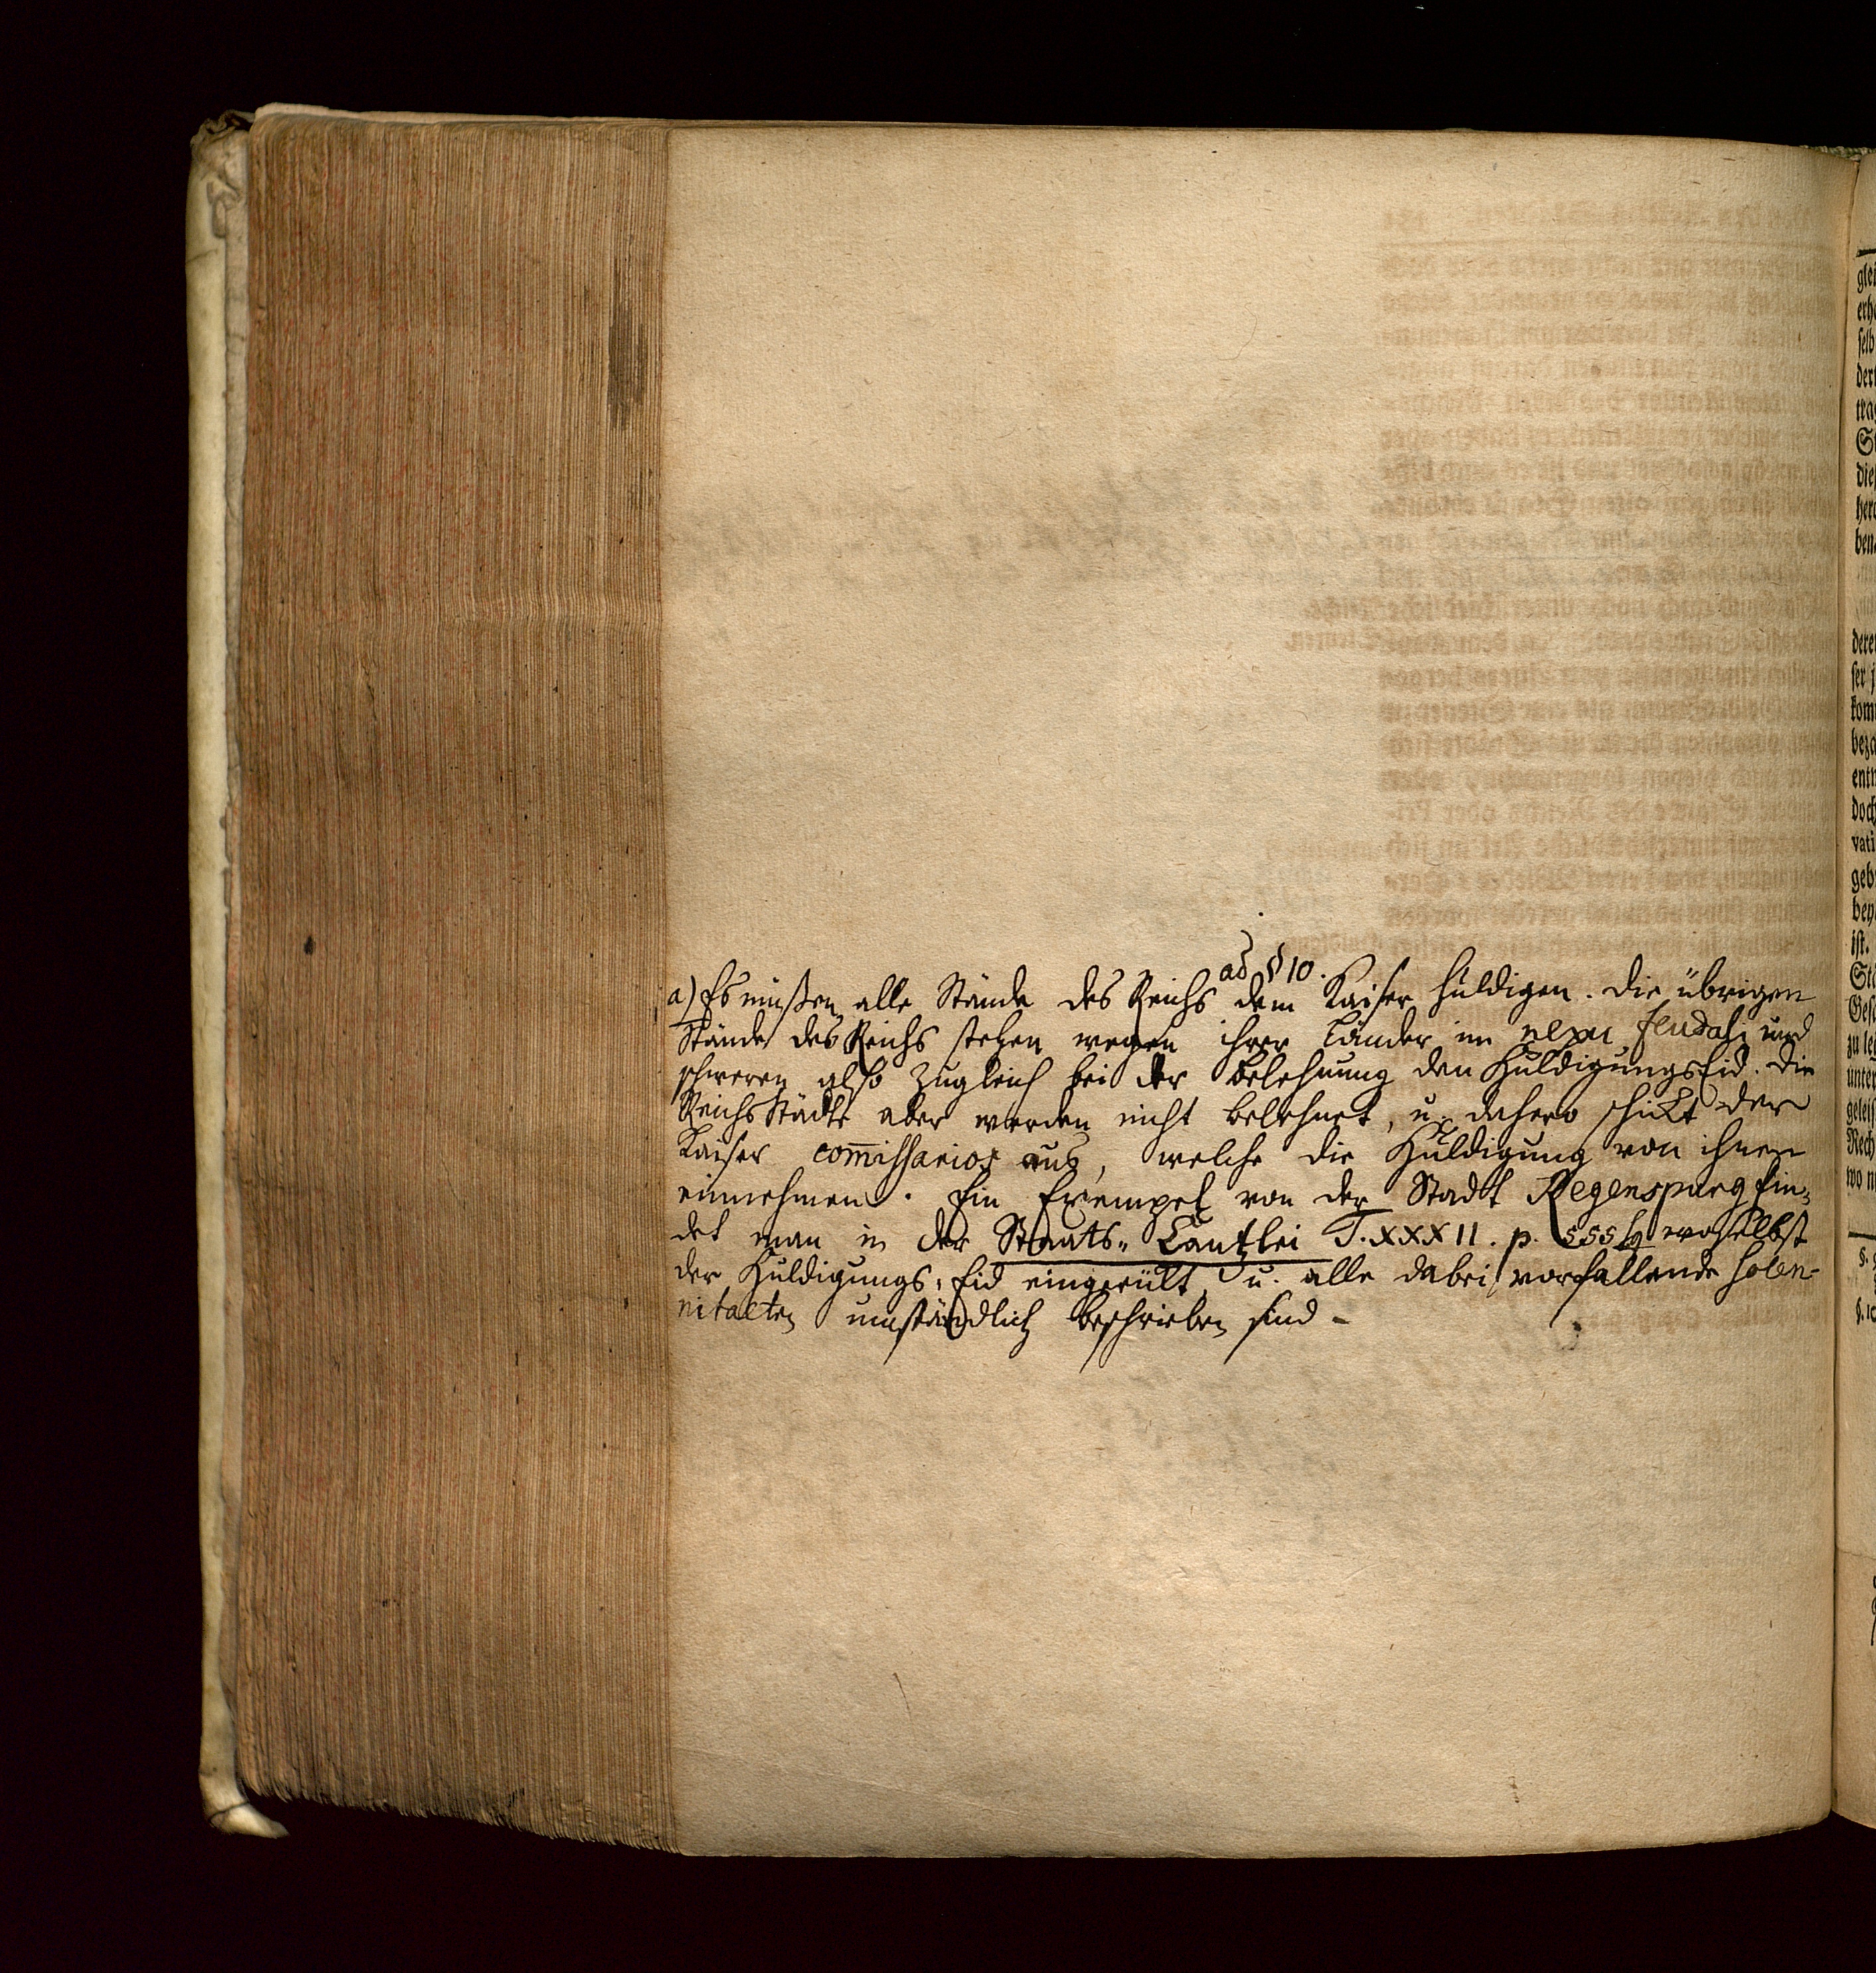 ad § 10.
a) Es müßen alle Stände des Reichs dem Kaiser huldigen. Die übrigen
Stände des Reichs stehen wegen ihrer Länder im nexu feudali und
schweren also zugleich bei der Belehnung den HuldigungsEid. Die
ReichsStädte aber werden nicht belehnet, u. dahero schikt der
Kaiser com̄issarios aus, welche die Huldigung von ihnen
einnehmen. Ein Exempel von der Stadt Regenspurg fin-
det man in der Staats-Cantzlei T. XXXII. p. 555 woselbst
der Huldigungs-Eid eingerükt u. alle dabei vorfallende solen-
nitaeten umständlich beschrieben sind.